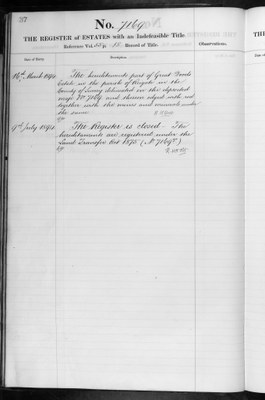 No. 7169
THE REGISTER of ESTATES with an Indefeasible Title.
Reference Vol. p. Record of Title.
Observations.
Date of Entry.
Description
March
The hereditaments part of Great Doods
Estate in the parish of Reigate in the
County of Surrey delineated on the deposited
map No 7169 and thereon edged with red
together with the mines and minerals under
the same
9th July
The Register is closed. The
hereditaments are registered under the
Land Transfer Act 1875 (No 7169)